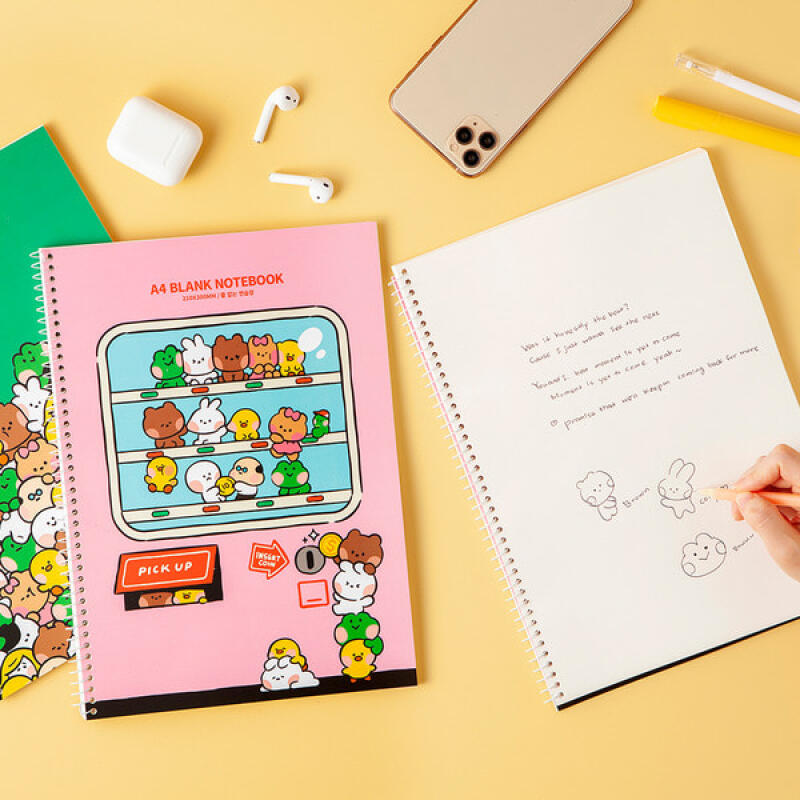 A4 BLANK NOTEBOOK
210X300MM / 줄 없는 연습장
PICK UP
INSERT
COIN
Was it honestly the best?
Cause I just wanna see the next
You and I, best moment is yet to come
Moment is yet to come yeah~
♡ promise that we'll keepin coming back for more
Brown
Co